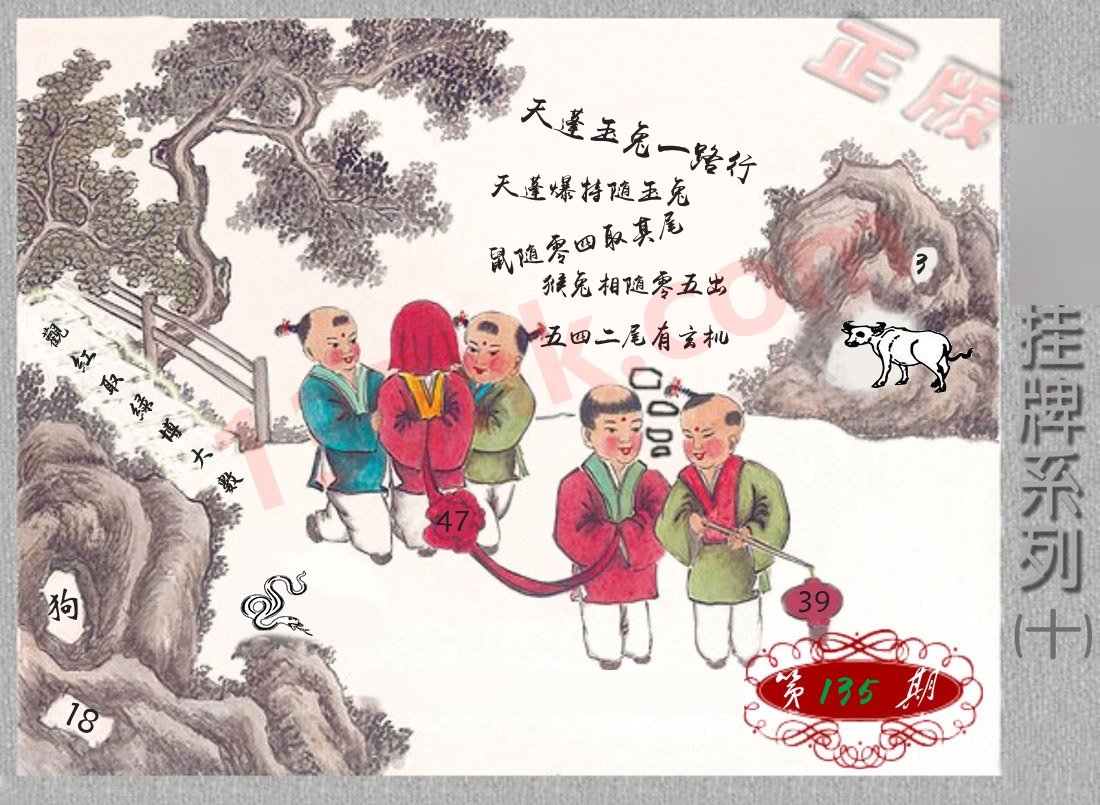 正版
天蓬玉兔一路行
天蓬爆特随玉兔
鼠随零四取其尾
猴兔相随零五出
五四二尾有玄机
3
觀紅取緑博大數
47
39
狗
18
第135期
挂牌系列(十)